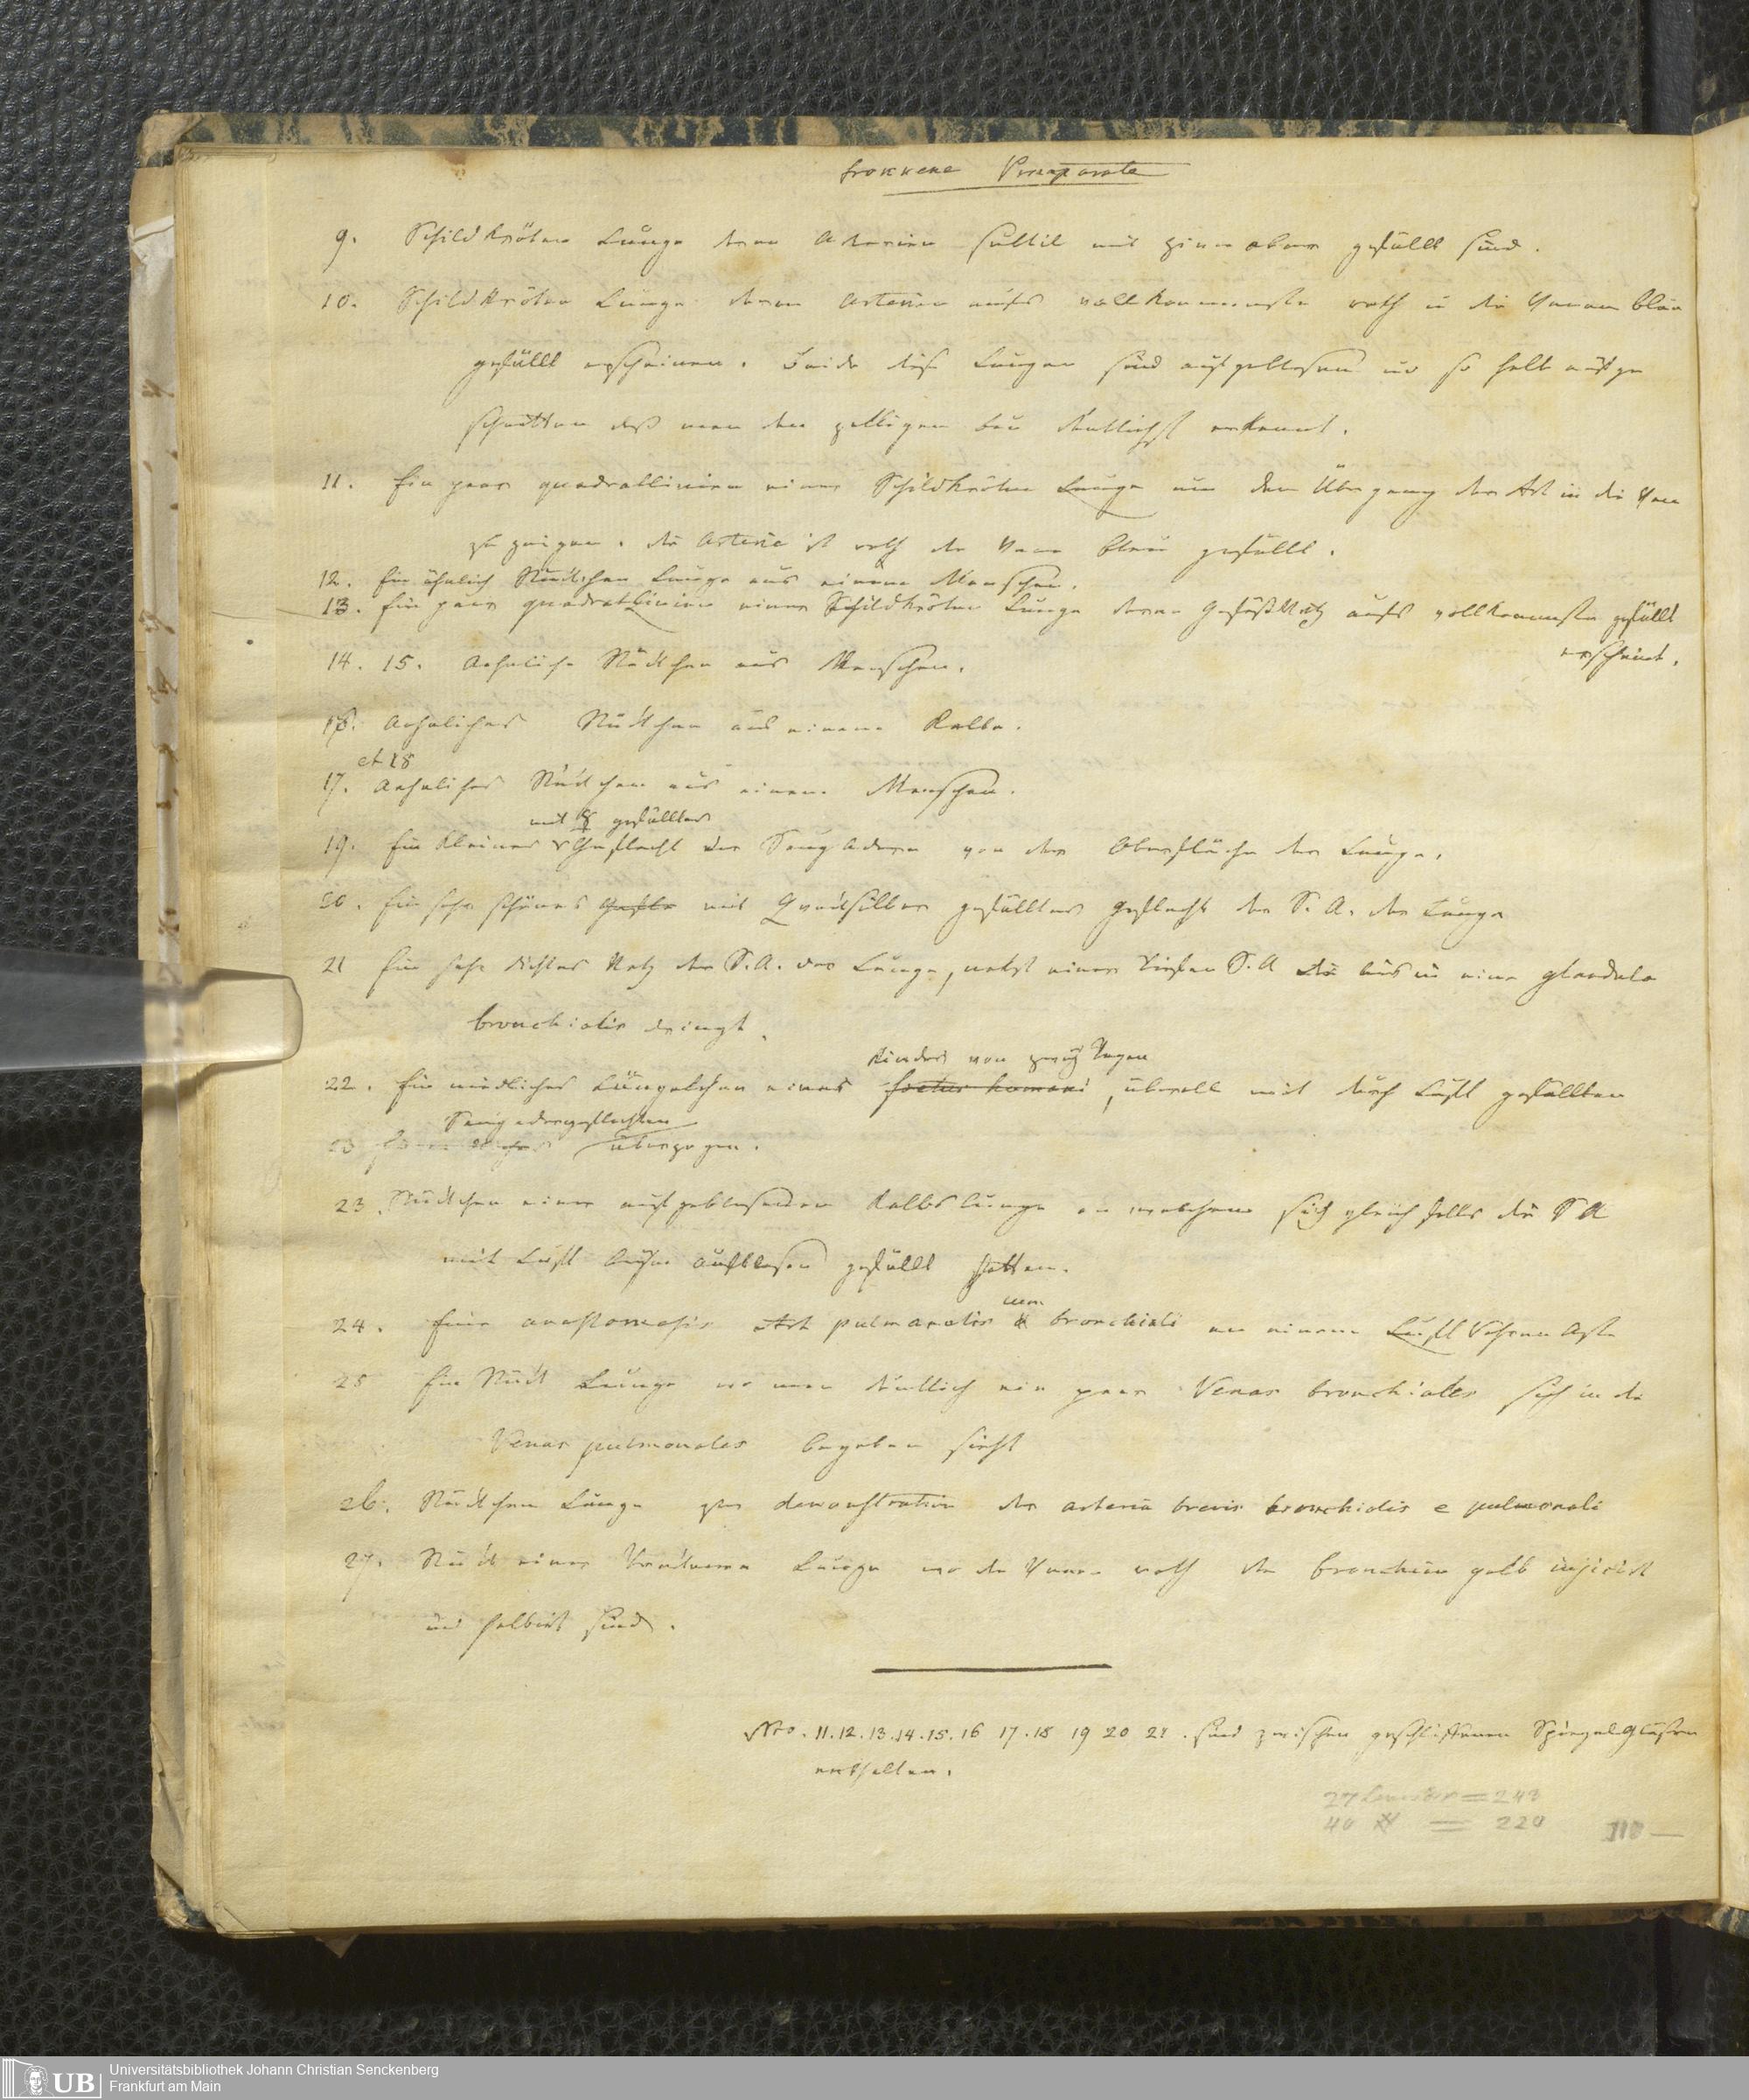 trokkene Praeparate
9. Schildkröten Lunge deren Arterien subtil mit Zinnober gefüllt sind.
10. Schildkröten Lunge deren Arterien aufs vollkommenste roth u die Venen blau
gefüllt erscheinen. Beide diese Lungen sind aufgeblasen und so halb aufge
schnitten daß man den zelligen bau deutlichst erkennt.
11. Ein paar quadratlinien einer Schildkröten Lunge um den Übergang der Art in die Ven
zu zeigen. die Arterie ist roth die Vene blau gefüllt.
12. Ein ähnlich Stückchen Lunge aus einem Menschen.
13. Ein paar quadratlinien einer Schildkröten Lunge deren Gefäßnetz aufs vollkommenste gefüllt
erscheint.
14. 15. Aehnliche Stückchen aus Menschen.
16. Aehnliches Stückchen aus einem Kalbe.
et 18
17. Aehnliches Stückchen aus einem Menschen.
mit ☿ gefülltes
19. Ein kleines Geflecht der Saug Adern von der Oberfläche der Lunge.
20. Ein sehr schönes Gefle mit Quecksilber gefülltes Geflecht der S. A. der Lunge
21 Ein sehr dichtes Netz der S.A. der Lunge, nebst einer tiefen S.A die bis in eine glandula
bronchialis dringt.
Kindes von zwey Tagen
22. Ein niedliches Lüngelchen eines foetus humani, überall mit durch Luft gefüllten
Saugadergeflechten
23 überzogen.
23. Stückchen einer aufgeblasenen Kalbslunge an welchem sich gleichfalls die S A
mit Luft beym aufblasen gefüllt hatten.
cum
24. Eine anastomosis Art pulmonalis bronchiali an einem Luft Röhren Aste
25 Ein Stück Lunge wo man deutlich ein paar Venas bronchiales sich in die
Venas pulmonales begeben sieht
26. Stückchen Lunge zur demonstration der arteria brevis bronchialis e pulmonali
27. Stück einer Lunge wo die Venen roth die bronchien gelb injicirt
und halbirt sind.
Nro. 11. 12. 13. 14. 15. 16 17. 18 19 20 21. sind zwischen geschliffenen Spiegel Gläsern
enthalten.
27 = 243
40 = 220